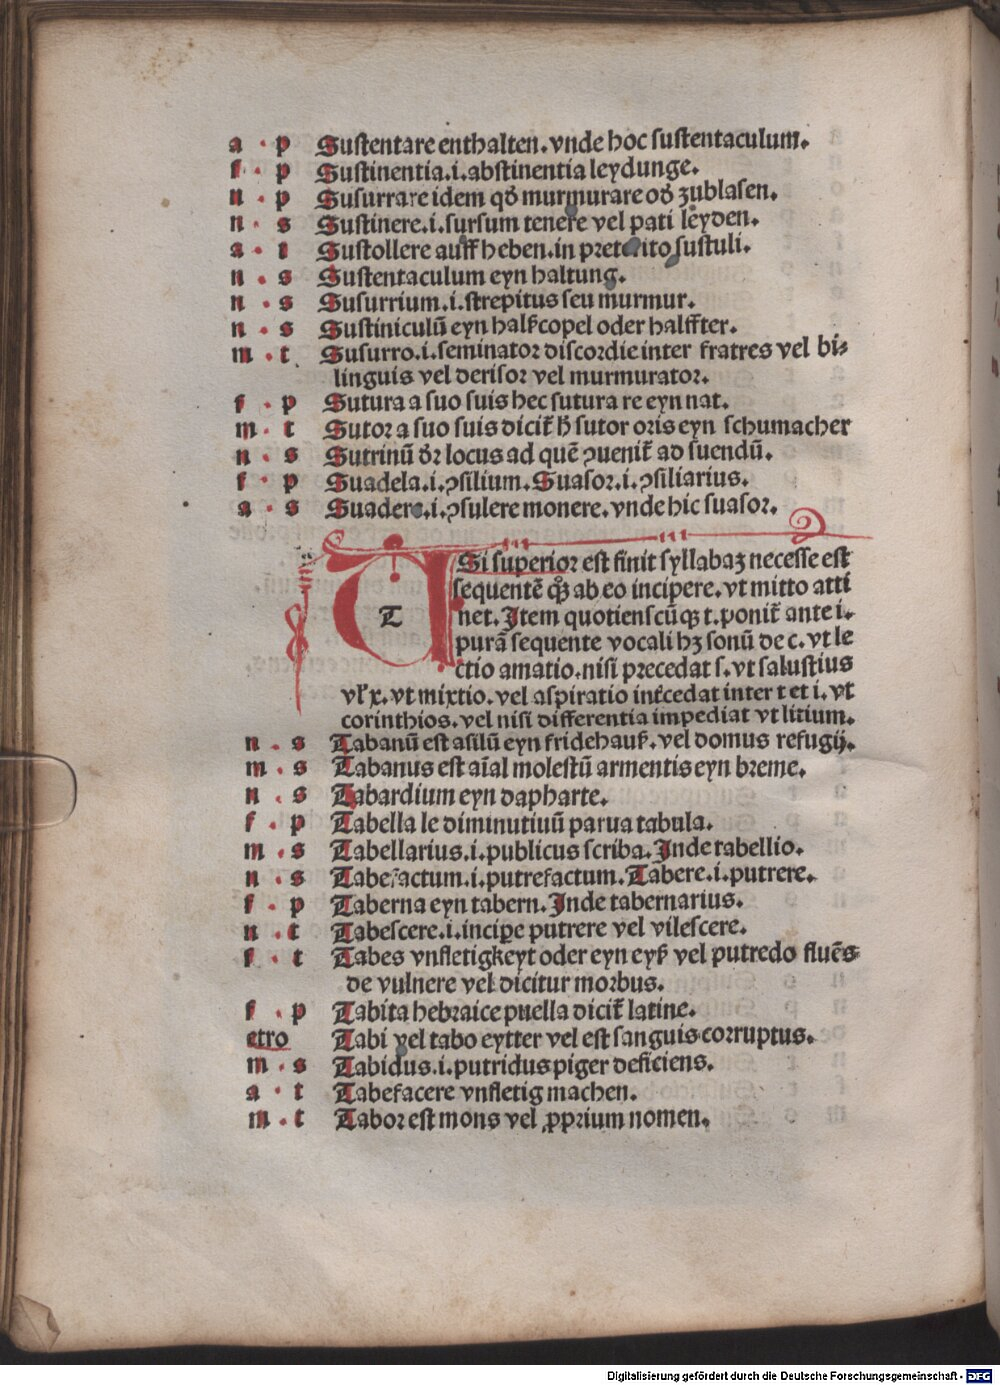 a · p Sustentare enthalten. vnde hoc sustentaculum.
f · p Sustinentia .i. abstinentia leydunge.
n · p Susurrare idem qđ murmurare ođ zublasen.
n · s Sustinere .i. sursum tenere vel pati leyden.
a · t Sustollere auff heben. in preterito sustuli.
n · s Sustentaculum eyn haltung.
n · s Susurrium .i. strepitus seu murmur.
n · s Sustiniculū eyn halßcopel oder halffter.
m · t Susurro .i. seminator discordie inter fratres vel bi⸗
linguis vel derisor vel murmurator.
f · p Sutura a suo suis hec sutura re eyn nat.
m · t Sutor a suo suis dicit̃ h̃ sutor oris eyn schumacher
n · s Sutrinū dr̃ locus ad quē ꝯuenit̃ ad suendū.
f · p Suadela .i. ꝯsilium. Suasor .i. ꝯsiliarius.
a · s Suadere .i. ꝯsulere monere. vnde hic suasor.
T Si superior est finit syllabaʒ necesse est
sequentē qꝫ ab eo incipere. vt mitto atti
net. Item quotienscūqꝫ t. ponit̃ ante i.
purā sequente vocali hʒ sonū de c. vt le
ctio amatio. nisi precedat s. vt salustius
vl̃ x. vt mixtio. vel aspiratio int̃cedat inter t et i. vt
corinthios. vel nisi differentia impediat vt litium.
n · s Tabanū est asilū eyn fridehauß. vel domus refugij.
m · s Tabanus est aīal molestū armentis eyn breme.
n · s Tabardium eyn dapharte.
f · p Tabella le diminutiuū parua tabula.
m · s Tabellarius .i. publicus scriba. Inde tabellio.
n · s Tabefactum .i. putrefactum. Tabere .i. putrere.
f · p Taberna eyn tabern. Inde tabernarius.
n · t Tabescere .i. incipe putrere vel vilescere.
f · t Tabes vnfletigkeyt oder eyn eyß vel putredo fluēs
de vulnere vel dicitur morbus.
f · p Tabita hebraice puella dicit̃ latine.
etro Tabi vel tabo eytter vel est sanguis corruptus.
m · s Tabidus .i. putridus piger deficiens.
a · t Tabefacere vnfletig machen.
m · t Tabor est mons vel ꝓprium nomen.
Digitalisierung gefördert durch die Deutsche Forschungsgemeinschaft - DFG